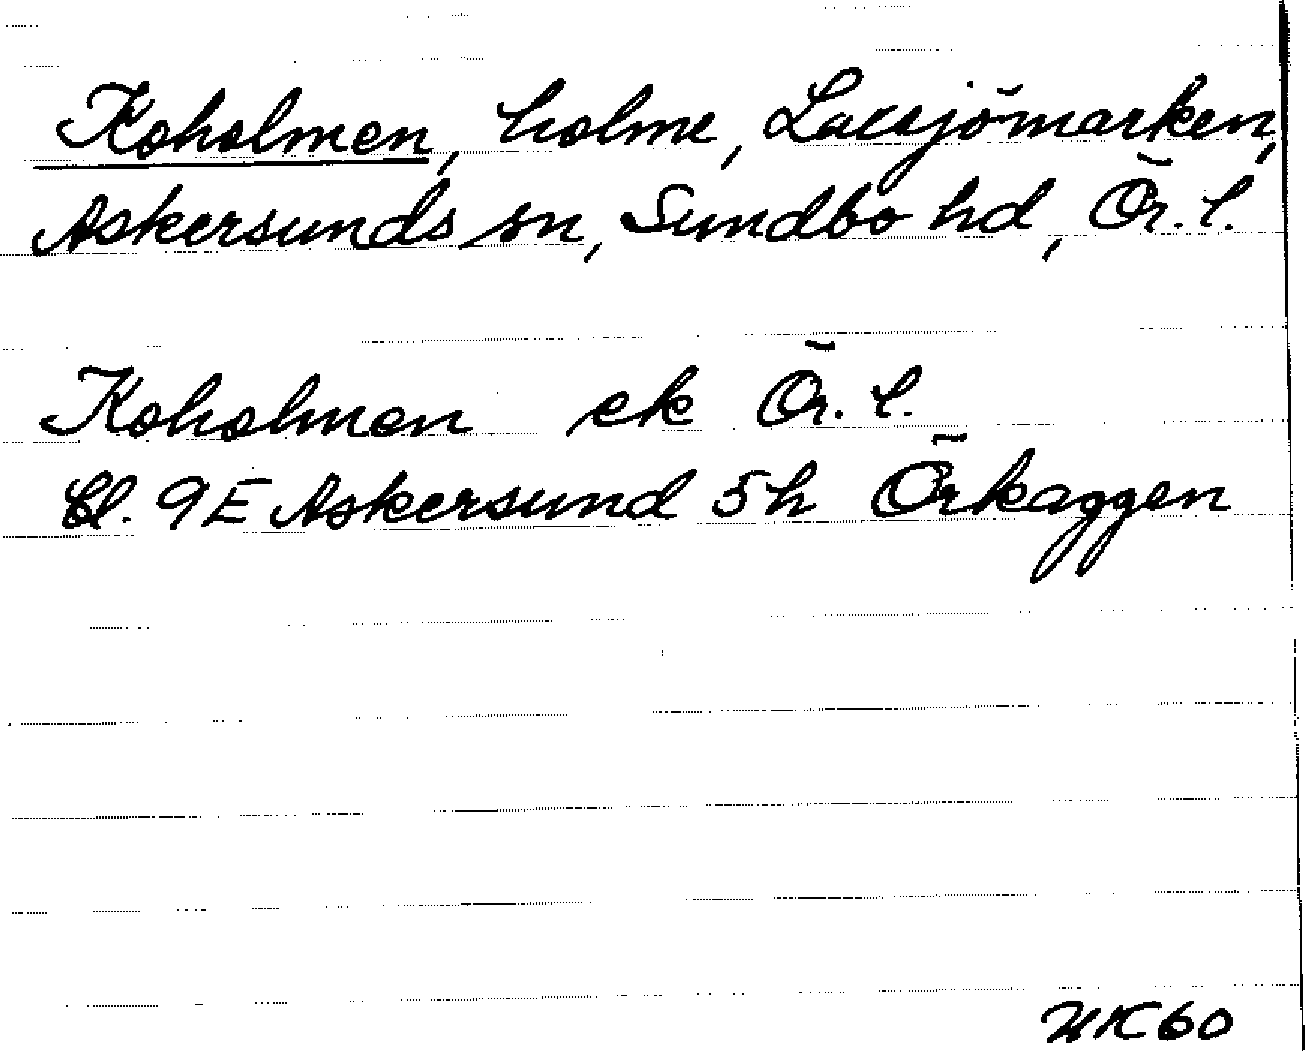 Koholmen, holme, Laxsjömarken,
Askersunds sn, Sundbo hd, Ör. l.
Koholmen ek Ör. l.
Bl. 9E Askersund 5h Örkaggen
60